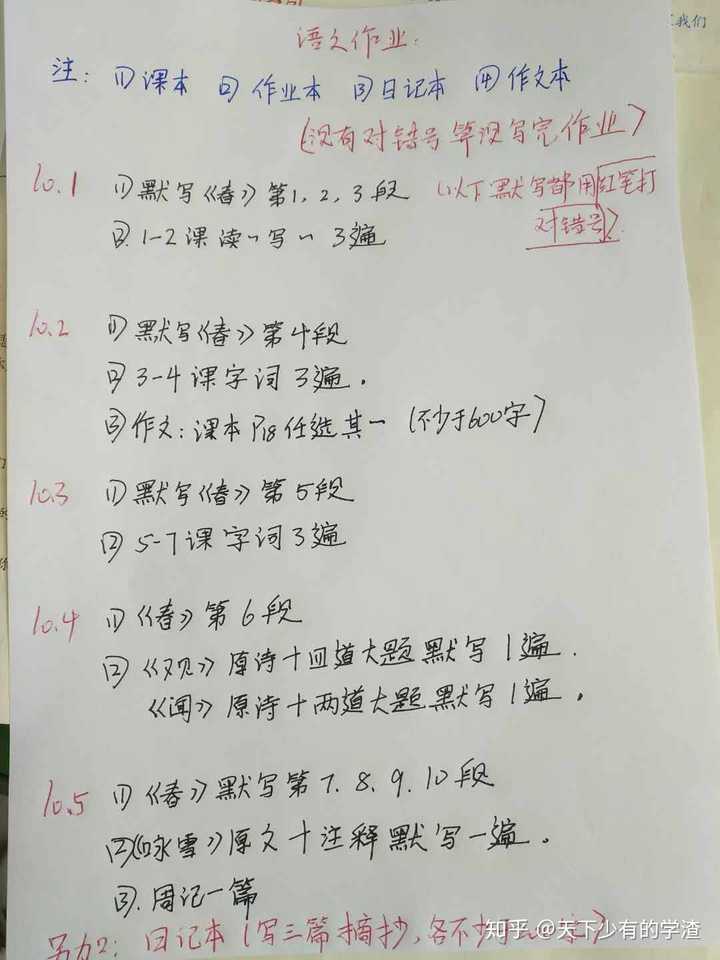 我们
语文作业:
注: (1)课本 (2)作业本 (3)日记本 (4)作文本
(没有对错号算没写完作业)
10.1 (1)默写《春》第1,2,3段 (以下默写都用红笔打
对错号)
(2).1-2课读一写一 3遍
10.2 (1)默写《春》第4段
(2)3-4课字词3遍.
(3)作文:课本P18任选其一 (不少于600字)
10.3 (1)默写《春》第5段
(2)5-7课字词3遍
10.4 (1)《春》第6段
(2)《观》原诗+四道大题默写1遍.
《闻》原诗+两道大题默写1遍.
10.5 (1)《春》默写第7.8.9.10段
(2)《咏雪》原文+注释默写一遍.
(3).周记一篇
另加2: 日记本(写三篇摘抄,各不少于
知乎 @天下少有的学渣